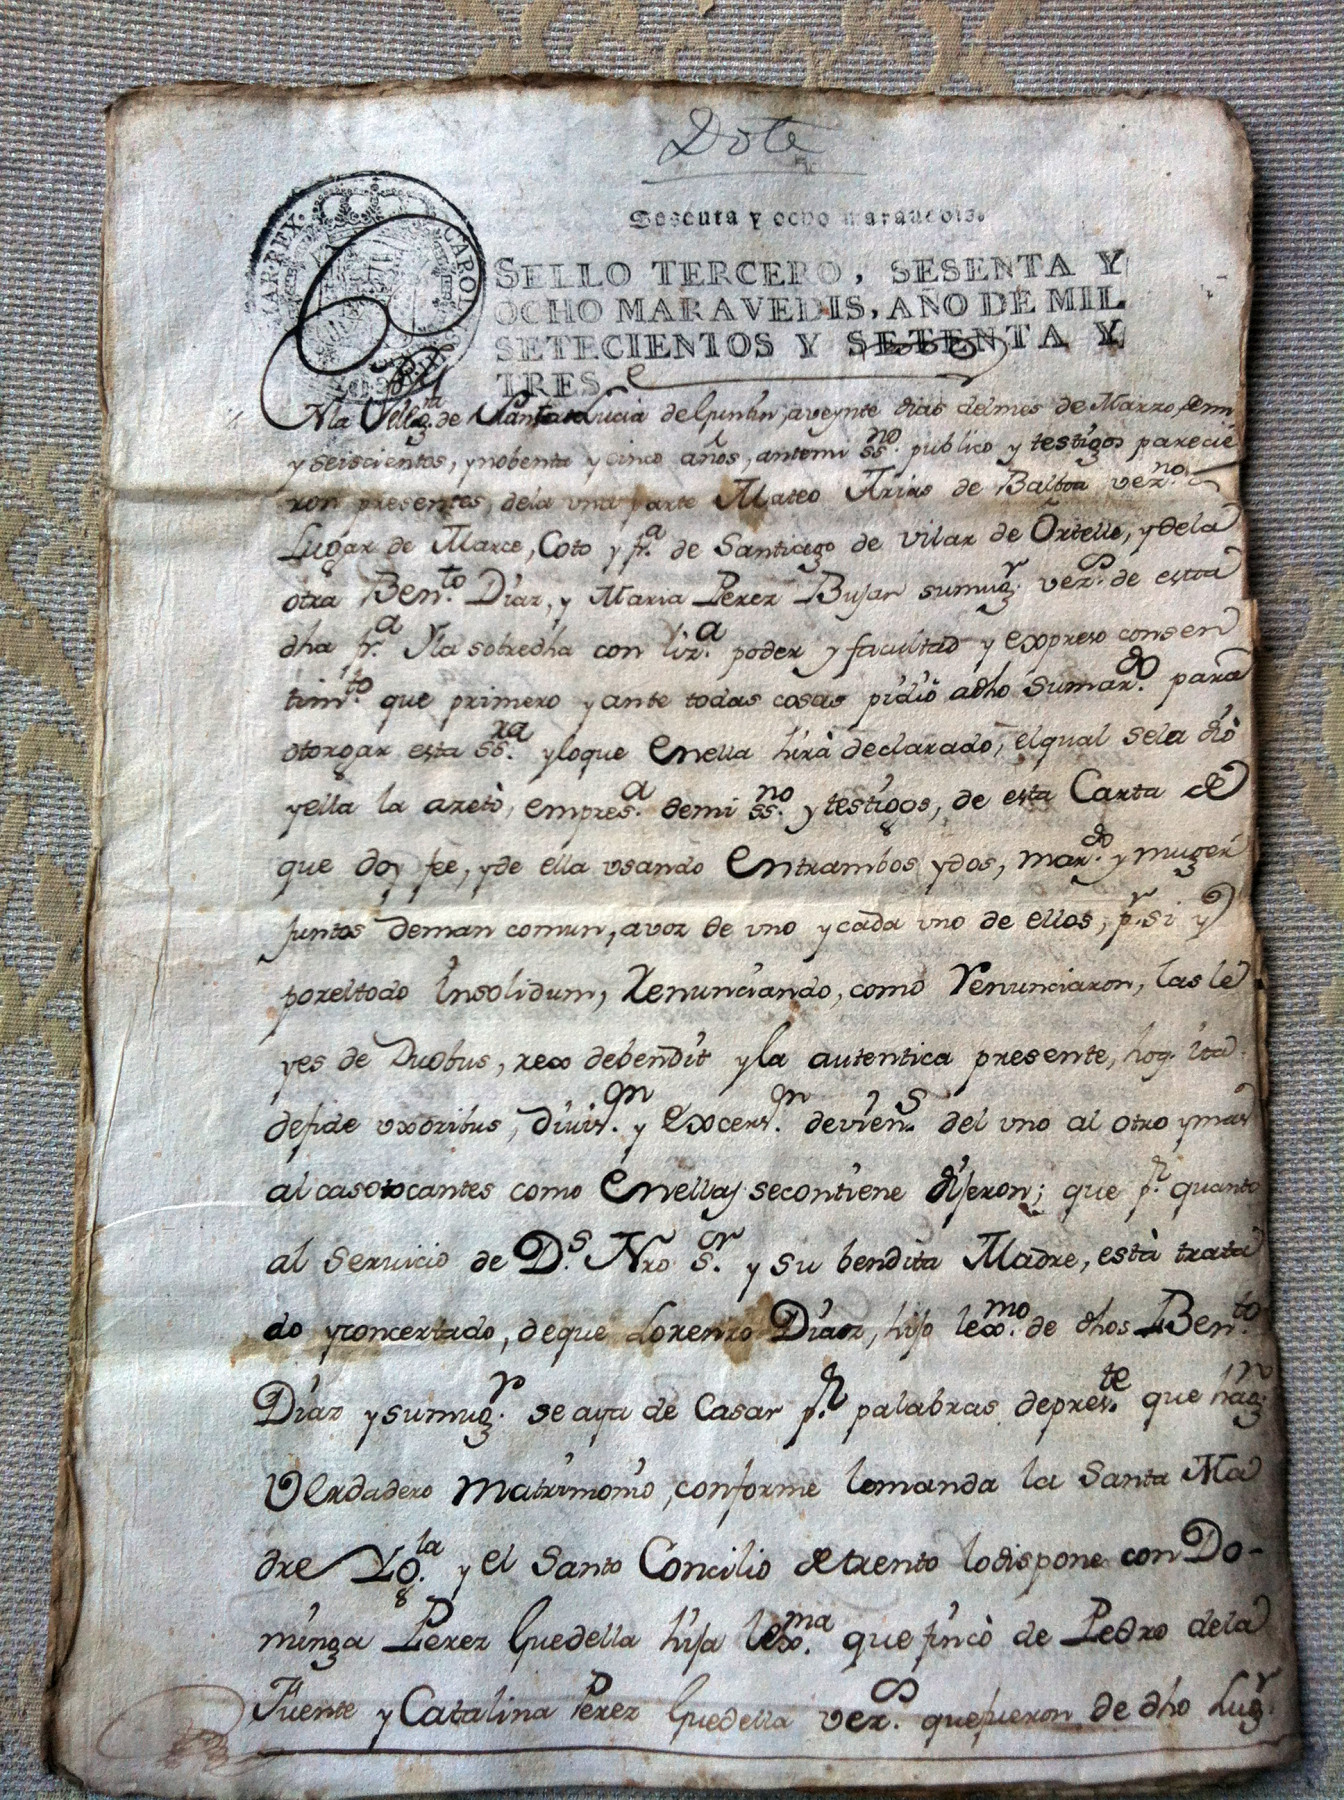 Dote
Sesenta y ocho maravedis.
CAROLUS
HISPANIAR. REX.
SELLO TERCERO, SESENTA Y
OCHO MARAVEDIS, AÑO DE MIL
SETECIENTOS Y SETENTA Y
TRES.
Nla Vellg.ra de Santa Lucia de Guntin, aveynte dias delmes de Marzo, demil
y seiscientos, ynobenta y cinco años, antemi ss.no publico y testigos parecie
ron presentes, dela una parte Mateo Arias de Balboa vez.no
Lugar de Marce, Coto y fr.a de Santiago de Vilar de Ortelle, y dela
otra Ben.to Diaz, y Maria Perez Bujan sumug.r vez.s de esta
dha fr.a Yla sobredha con liz.a poder y facultad y expreso consen
tim.to que primero y ante todas cosas pidiò adho sumar.do para
otorgar esta ss.ra yloque enella hirà declarado, elqual sela diò
yella la azetò, empres.a demi ss.no y testigos, de esta Carta de
que doy fee, yde ella usando entrambos ydos, mar.do y muger
juntos deman comun, avoz de uno y cada uno de ellos, p.r si y
poreltodo insolidum, Renunciando, como renunciaron, las le
yes de Duobus, rex debendit yla autentica presente, hoq. ita
defide uxoribus, divis.on y excens.on devien.s del uno al otro ymas
alcasotocantes como enellas secontiene dijeron; que p.r quanto
al servicio de D.s Nro s.or y su bendita Madre, està trata
do yconcertado, deque Lorenzo Diaz, hijo lex.mo de dhos Ben.to
Diaz ysumug.r se aya de Casar p.r palabras depres.te que hag.n
Verdadero matrimonio, conforme lomanda la Santa Ma
dre Yg.la y el Santo Concilio detrento lodispone con Do-
minga Perez Guedella hija lex.ma que fincò de Pedro dela
Fuente y Catalina Perez Guedella vez.s quefueron de dho Lug.r